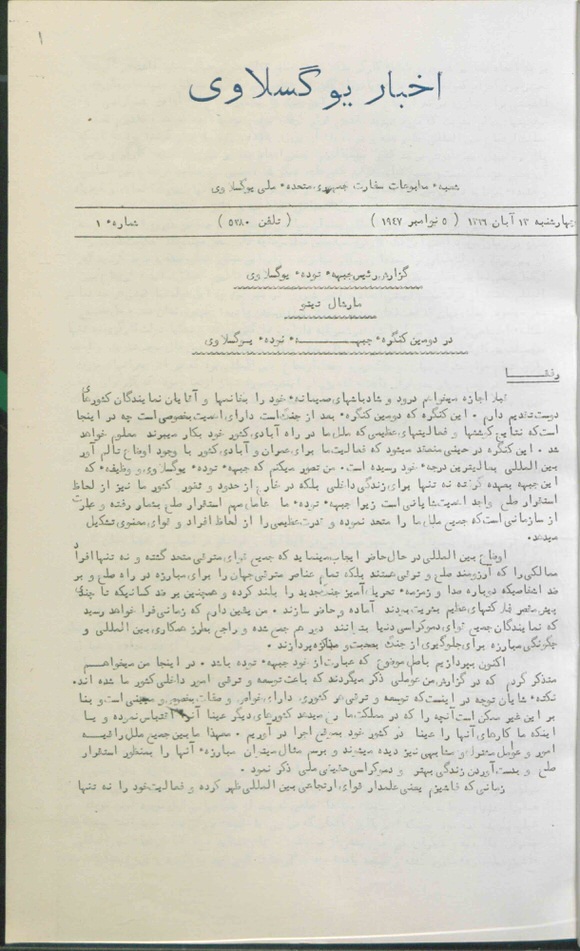 ۱
اخبار یوگسلاوی
شعبهٔ مطبوعات سفارت جمهوری متحدهٔ ملی یوگسلاوی
چهارشنبه ۱۳ آبان ۱۳۲۶ ( ۵ نوامبر ۱۹۴۷ ) ( تلفن ۵۲۸۰ ) شمارهٔ ۱
گزارش رئیس جبههٔ تودهٔ یوگسلاوی
مارشال تیتو
در دومین کنگرهٔ جبههٔ تودهٔ یوگسلاوی
رفقا
اجازه میخواهم درود و شادباشهای صمیمانهٔ خود را بخانمها و آقایان نمایندگان کشورهای
دوست تقدیم دارم ۰ این کنگره که دومین کنگرهٔ بعد از جنگ است دارای اهمیت بخصوصی است چه در اینجا
است که نتایج کوششها و فعالیتهای عظیمی که ملل ما در راه آبادی کشور خود بکار میبرند معلوم خواهد
شد ۰ این کنگره در حینی منعقد میشود که فعالیت ما برای عمران و آبادی کشور با وجود اوضاع تالم آور
بین المللی بعالیترین درجهٔ خود رسیده است ۰ من تصور میکنم که جبههٔ تودهٔ یوگسلاوی و وظیفهٔ که
این جبهه بعهده گرفته نه تنها برای زندگی داخلی بلکه در خارج از حدود و ثغور کشور ما نیز از لحاظ
استقرار صلح واجد اهمیت شایانی است زیرا جبههٔ تودهٔ ما عامل مهم استقرار صلح بشمار رفته و عبارت
از سازمانی است که جمیع ملل ما را متحد نموده و قدرت عظیمی را از لحاظ افراد و قوای معنوی تشکیل
میدهد۰
اوضاع بین المللی در حال حاضر ایجاب مینماید که جمیع قوای مترقی متحد گشته و نه تنها افراد
ممالکی را که آرزومند صلح و ترقی هستند بلکه تمام عناصر مترقی جهان را برای مبارزه در راه صلح و بر
ضد اشخاصیکه دوباره صدا و زمزمهٔ تحریک آمیز جنگ جدید را بلند کرده و همچنین بر ضد کسانیکه تا چندی
پیش بشریت بودند آماده و حاضر سازند ۰ من یقین دارم که زمانی فرا خواهد رسید
که نمایندگان جمیع قوای دموکراسی دنیا بتوانند دور هم جمع شده و راجع بطرز همکاری بین المللی و
چگونگی مبارزه برای جلوگیری از جنگ بصحبت و مذاکره پردازند ۰
اکنون بپردازیم باصل موضوع که عبارت از خود جبههٔ توده باشد ۰ در اینجا من میخواهم
متذکر گردم که در گزارش من عواملی ذکر میگردند که باعث توسعه و ترقی امور داخلی کشور ما شده اند۰
نکتهٔ شایان توجه در اینست که توسعه و ترقی هر کشوری دارای خواص و صفات بخصوص و معینی است و بنا
بر این غیر ممکن است آنچه را که در مملکت ما رخ میدهد کشورهای دیگر عینا آنرا اقتباس نموده و یا
اینکه ما کارهای آنها را عینا در کشور خود بموقع اجرا در آوریم ۰ معهذا ما بین جمیع ملل راقیه
امور و عوامل مشترک و مشابهی نیز دیده میشوند و برسم مثال میتوان مبارزهٔ آنها را بمنظور استقرار
صلح و بدست آوردن زندگی بهتر و دموکراسی حقیقی ملی ذکر نمود ۰
زمانی که فاشیزم یعنی علمدار قوای ارتجاعی بین المللی ظهور کرده و فعالیت خود را نه تنها